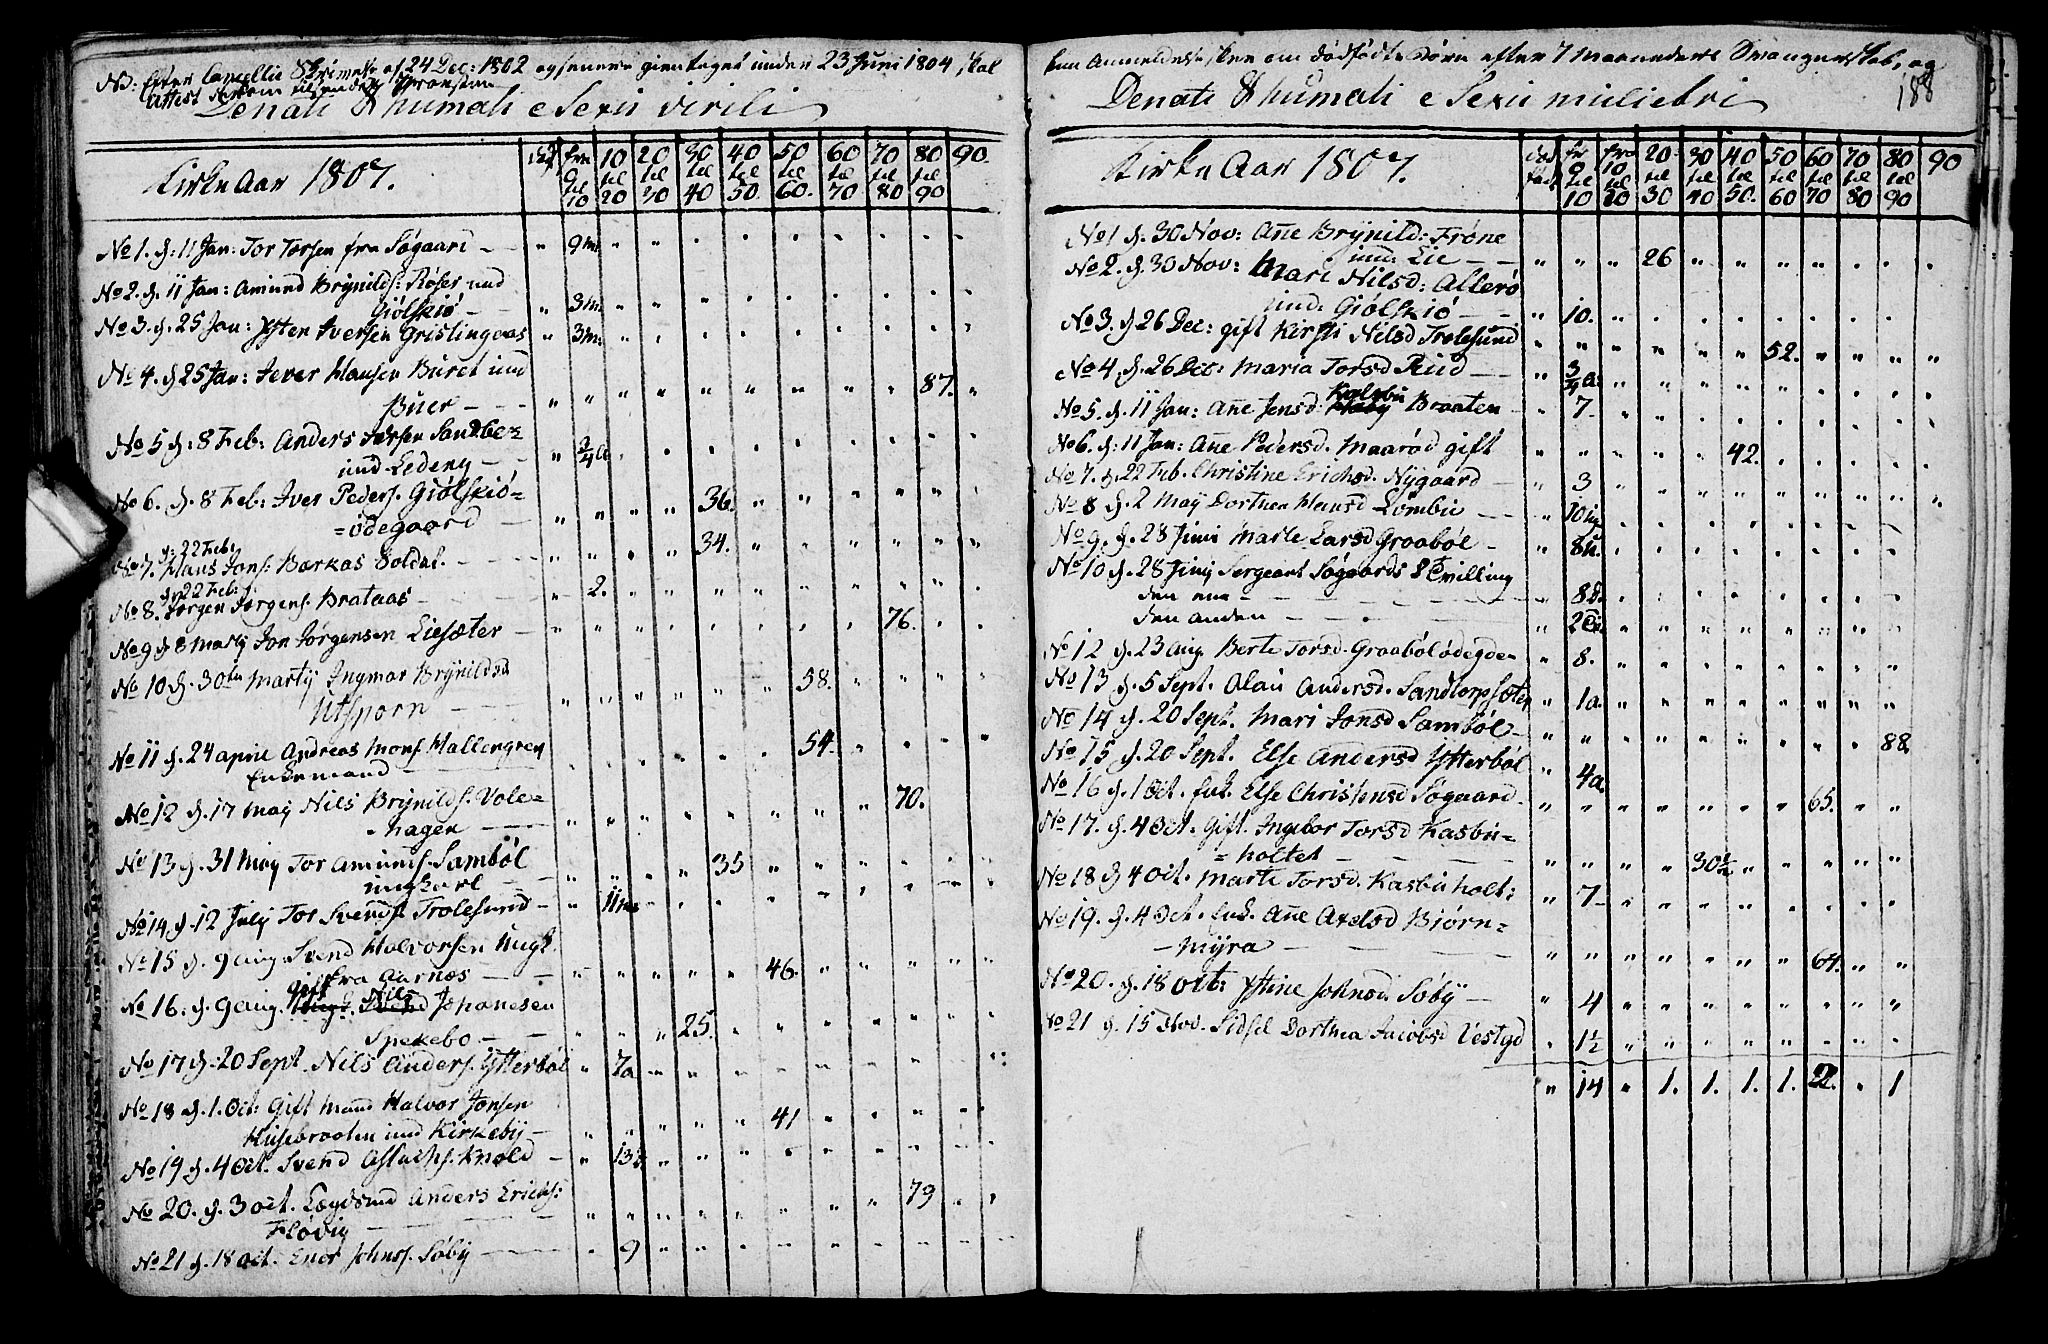 NB: Efter Cancellie Skrivelse af 24 Dec: 1802 og senere gientaget under 23 Juni 1804, skal
Attest
Denati & humati e Sexu virili
Kirke Aar 1807.
død fra 0 til 10 10 til 20 20 til 30 30 til 40 40 til 50. 50 til 60. 60 til 70 70 til 80 80 til 90 90.
No 1. d: 11 Jan: Tor Torsen fra Søgaard - 9 m:
No 2. d. 11 Jan: Amund Brÿnilds: Røser und
Giølskiø - 3 m:
No 3. d. 25 Jan: Ysten Iversen Gristingaas 3 m:
No 4. d. 25 Jan: Iever Hansen Buret und
Buer - - - 87.
No 5 d: 8 Feb: Anders Iversen Sandbe=
und Ledeng - - 3/4 a
No 6. d. 8 Feb: Iver Peders. Giølskiø=
=ødegaard - 36.
d: 22 Feb:
No 7. Hans Jons: Barkas Soldat. 34.
d. 22 Feb:
No 8. Jørgen Jørgens. Brataas - 2.
No 9 d 8 Martÿ Jon Jørgensen Liesæter - 76.
No 10 d. 30te Martÿ Ingmar Brÿnildsd
Utsporn - 58.
No 11 d. 24 april Andreas Mons. Hallengren
Enkemand - 54.
No 12 d. 17 Maÿ Nils Brÿnilds. Vole=
=hagen - 70.
No 13 d. 31 Maÿ Tor Amunds. Sambøl
ungkarl - 35
No 14 d. 12 Julÿ Tor Svends. Trolesund - 11 m
No 15 d. 9 Aug. Svend Halvorsen Ungk.
fra Aarnæs - 46.
gift Nils
No 16. d. 9 Aug. Ungk. Svend Johannesen
Spekebo - 25.
No 17 d. 20 Sept. Nils Anders. Ytterbøl 7 a
No 18 d. 1. Oct: Gift Mand Halvor Jonsen
Husebraaten und Kirkebÿ - 41
No 19 d. 4 Oct. Svend Aslachs. Knold - 13
No 20. d. 3 Oct. Lægdsmd Anders Erichs:
Flødvig 79
No 21 d. 18 Oct. Enor Johns. Søbÿ - 9
kun Anmeldelse skee om dødfødte Børn efter 7 Maaneders Svangerskab, og
188
Denati & humati e Sexu muliebri
Kirke Aar 1807.
død fød fr 0 til 10 fra 10 til 20 20 til 30 30 til 40 40 til 50. 50 til 60 60 til 70 70 til 80 80 til 90 90
No 1 d. 30 Nov: Añe Brÿnild: Frøne
und: Lie - - 26
No 2. d. 30 Nov: Mari Nilsd: Allerø
und: Giølskiø - - 10.
No 3. d 26 Dec: gift Kirsti Nilsd Trolesund 52.
No 4. d. 26 Dec: Maria Torsd Ruud - - 3/4 a:
No 5. d. 11 Jan: Añe Jensd: Kalebÿ Braaten - 7.
No 6. d: 11 Jan: Añe Pedersd. Maarød gift 42.
No 7. d. 22 Feb. Christine Erichsd. Nÿgaard - 3
No 8 d. 2 Maÿ Dorthea Hansd Lombu - - 10 ug
No 9. d. 28 Junii Marte Larsd Graabøl - 8 u.
No 10 d. 28 Junij Sergeant Søgaards 2 Tvilling
den ene - 8 d.
den anden - 2
No 12 d. 23 Aug Berte Torsd. Graabølødegden 8.
No 13 d. 5 Sept. Alau Andersd. Sandtorpsæter 1 a.
No 14 d. 20 Sept. Mari Jonsd Sambøl - 88.
No 15 d. 20 Sept. Else Andersd Ytterbøl 4 a.
No 16 d. 1 Oct. Enk. Else Christensd Søgaard - 65.
No 17. d. 4 Oct. Gift. Ingebor Torsd Kasbu=
=holtet - 30 1/2
No 18 d 4 Oct. Marte Torsd. Kasbu holt: 7
No 19. d. 4 Oct. Enk. Añe Axelsd Biørn=
- mÿra - 64.
No 20. d. 18 Oct: Ystine Johnsd Søbÿ - 4
No 21 d. 15 Nov. Sidsel Dorthea Jacobsd Vestgd 1 1/2
14 1. 1. 1. 1. 2. 1